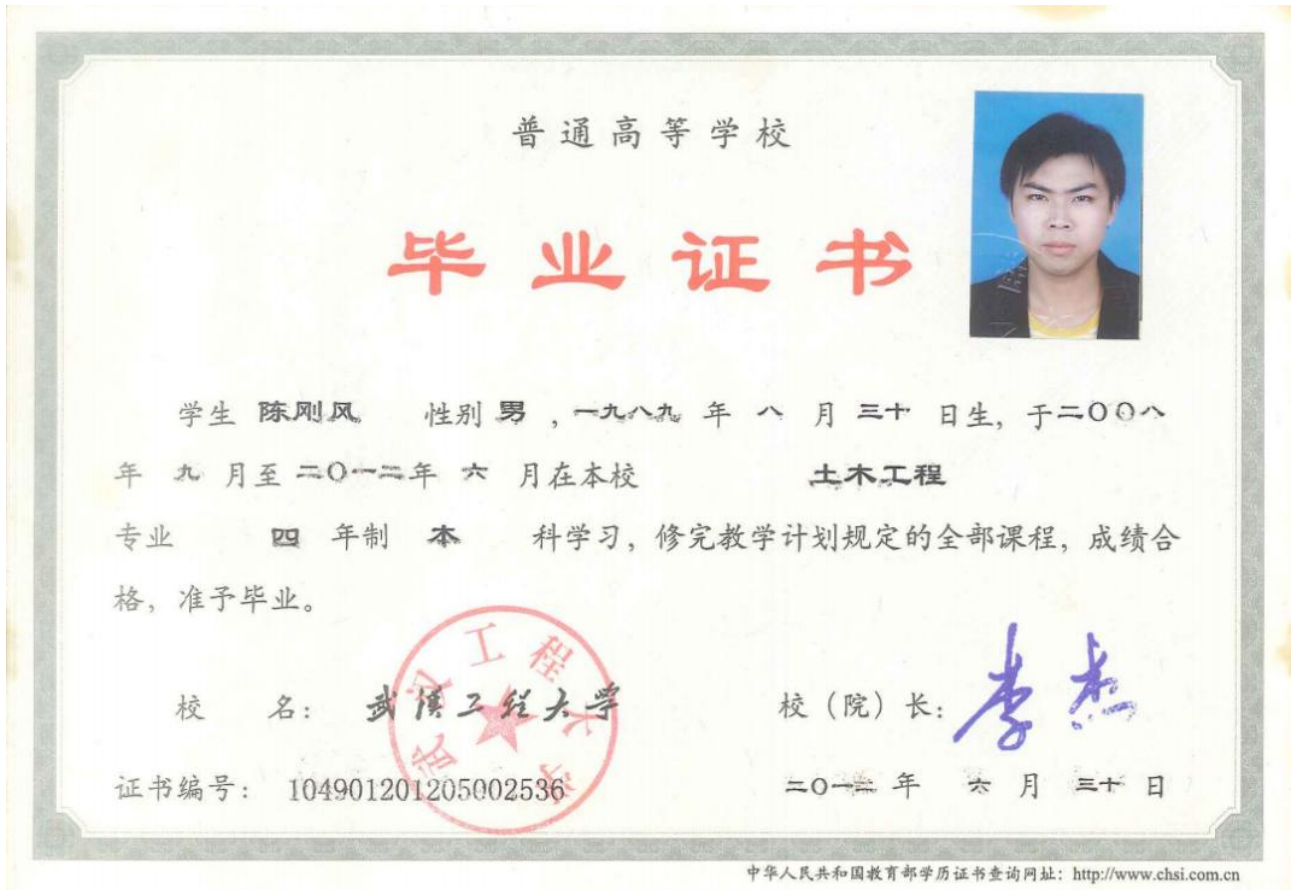 普通高等学校
毕业证书
学生 陈刚风 性别 男 ，一九八九 年 八 月 三十 日生，于二〇〇八
年 九 月至 二〇一二年 六 月在本校 土木工程
专业 四 年制 本 科学习，修完教学计划规定的全部课程，成绩合
格，准予毕业。
校 名： 武汉工程大学
校（院）长：李杰
证书编号： 104901201205002536
二〇一二 年 六 月 三十 日
武汉工程大学
中华人民共和国教育部学历证书查询网址：http://www.chsi.com.cn